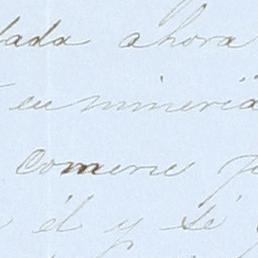 dada ahora
en mineria
comerse
él y sé